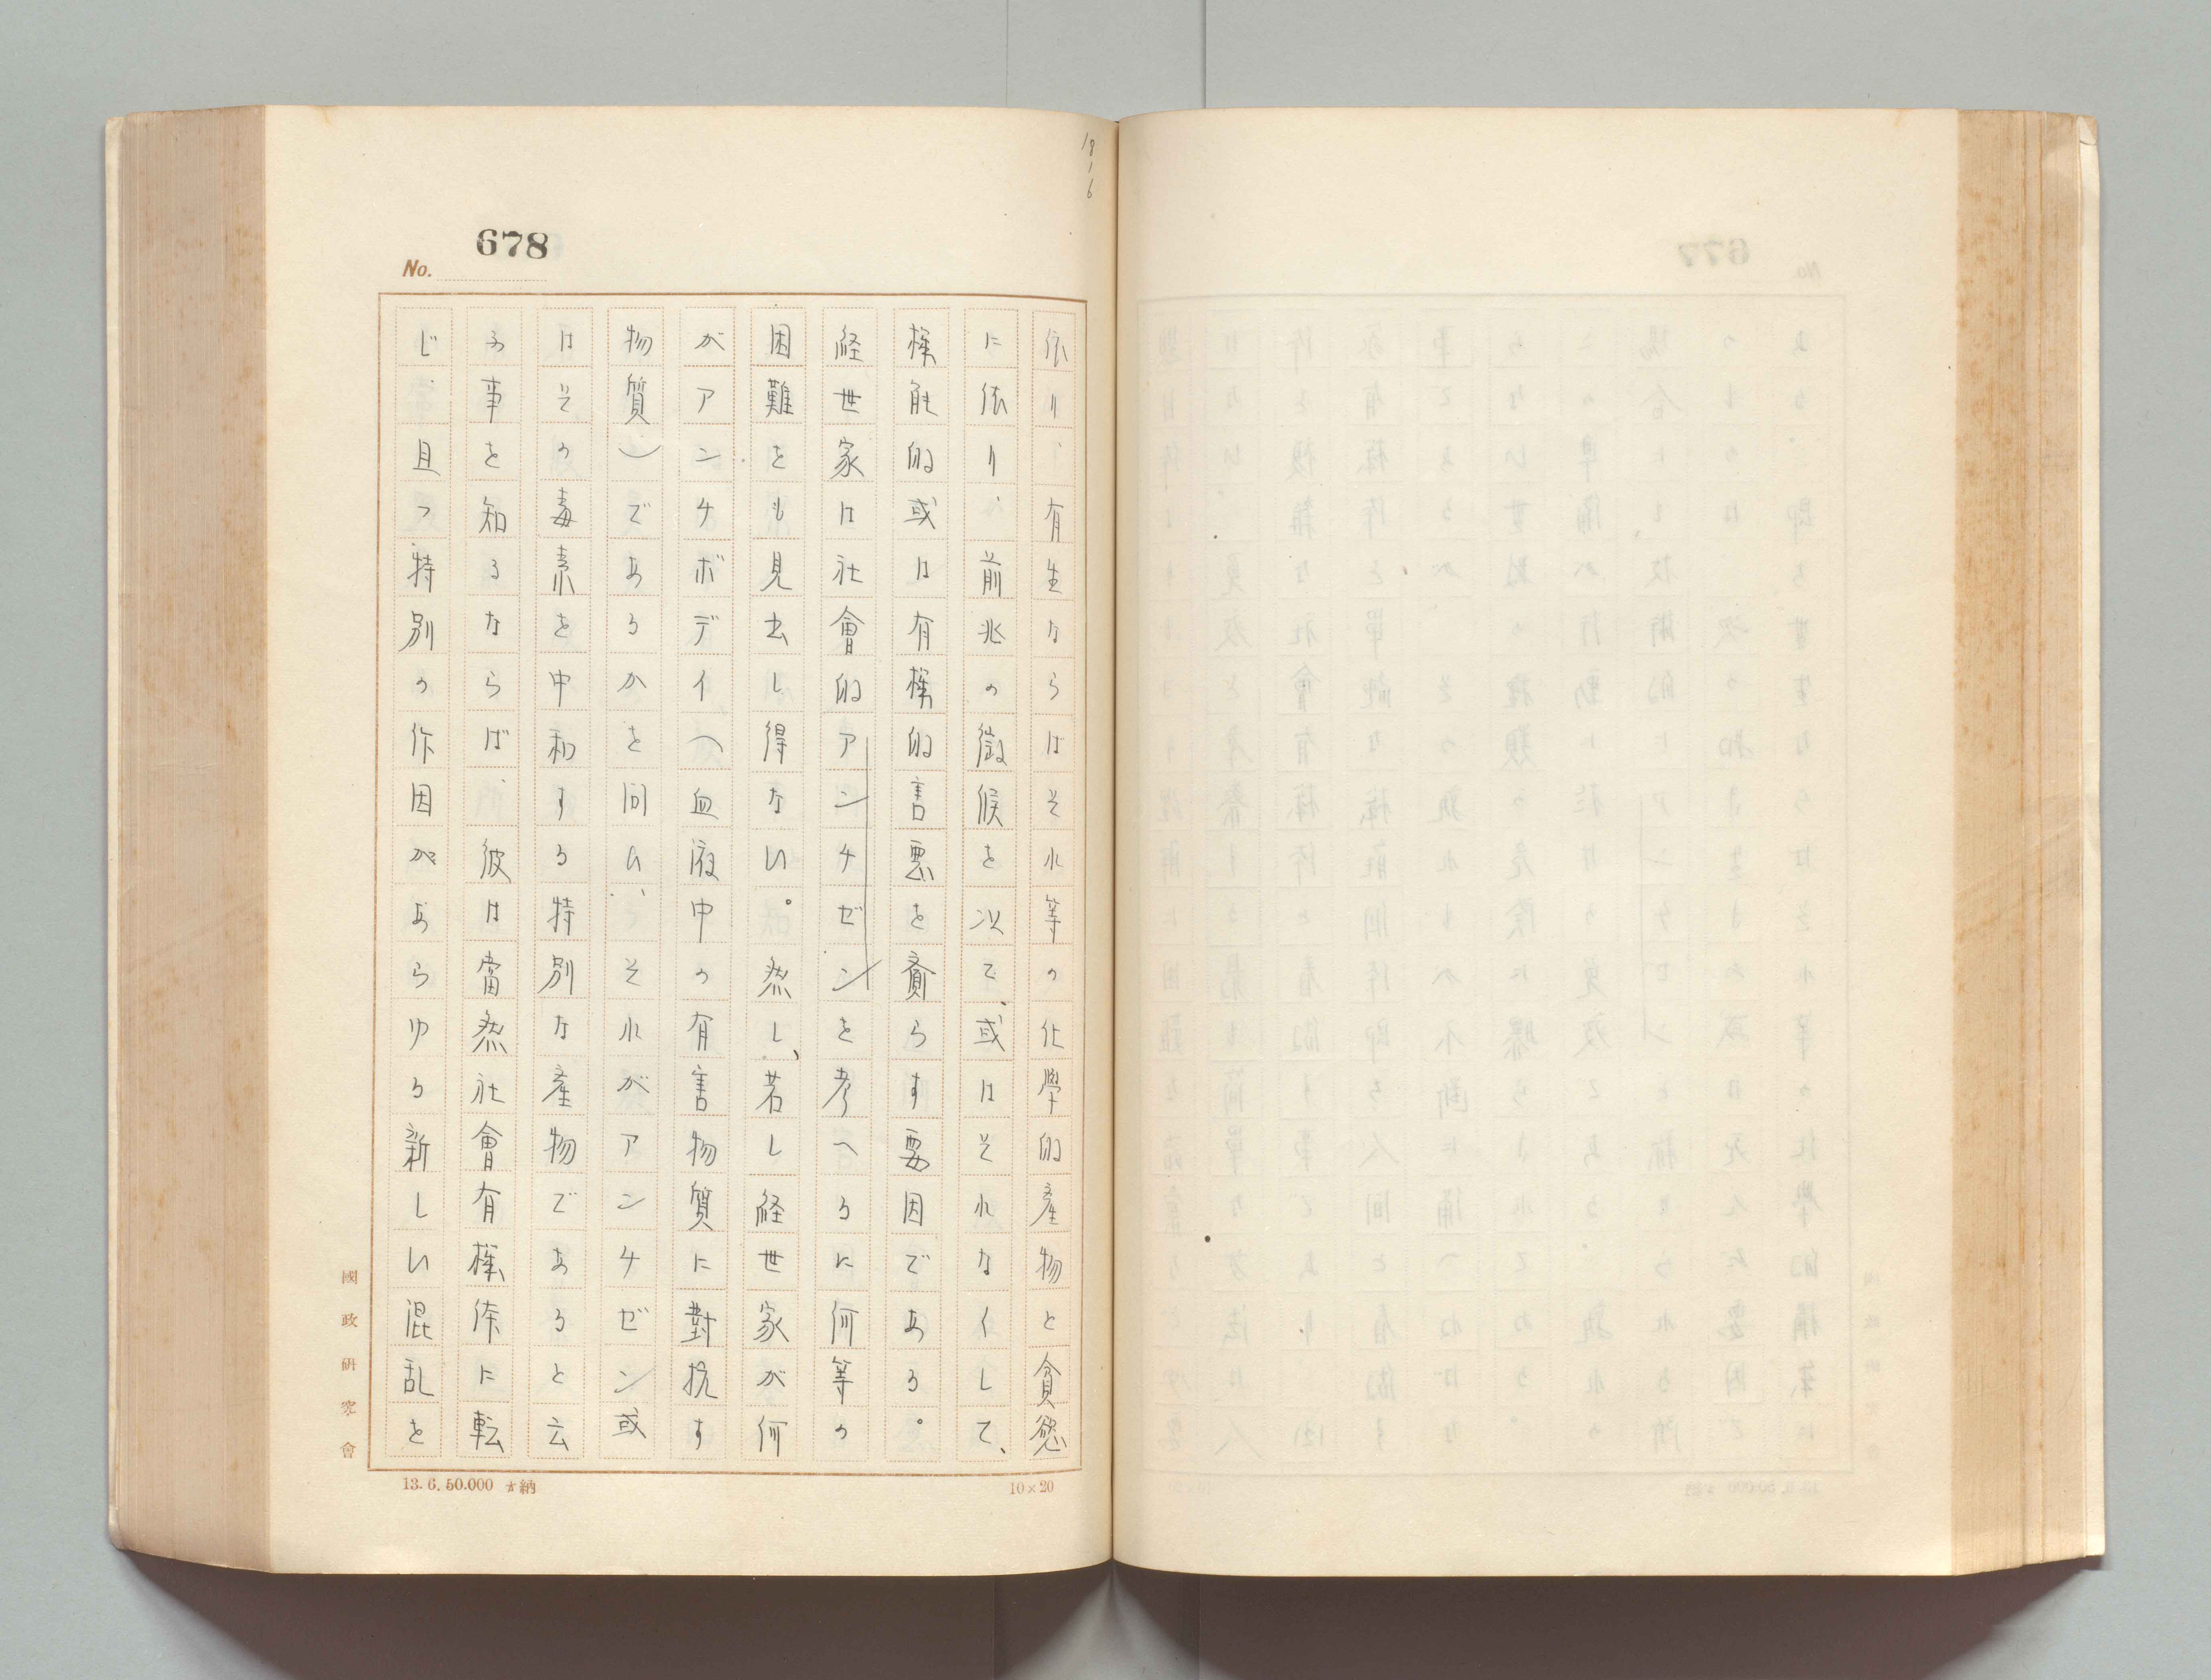 1816
678
No.
依り、有生ならばそれ等の化學的産物と貪慾
に依り、前兆の徴候を以て、或はそれなくして、
機能的或は有機的害悪を齎らす要因である。
経世家は社會的アンチゼンを考へるに何等の
困難をも見出し得ない。然し、若し経世家が何
がアンチボディ(血液中の有害物質に對抗す
物質)であるかを問ひ、それがアンチゼン或
はその毒素を中和する特別な産物であると云
ふ事を知るならば、彼は當然社會有機体に転
じ、且つ特別の作因があらゆる新しい混乱を
國政研究會
13.6.50.000 納
10×20